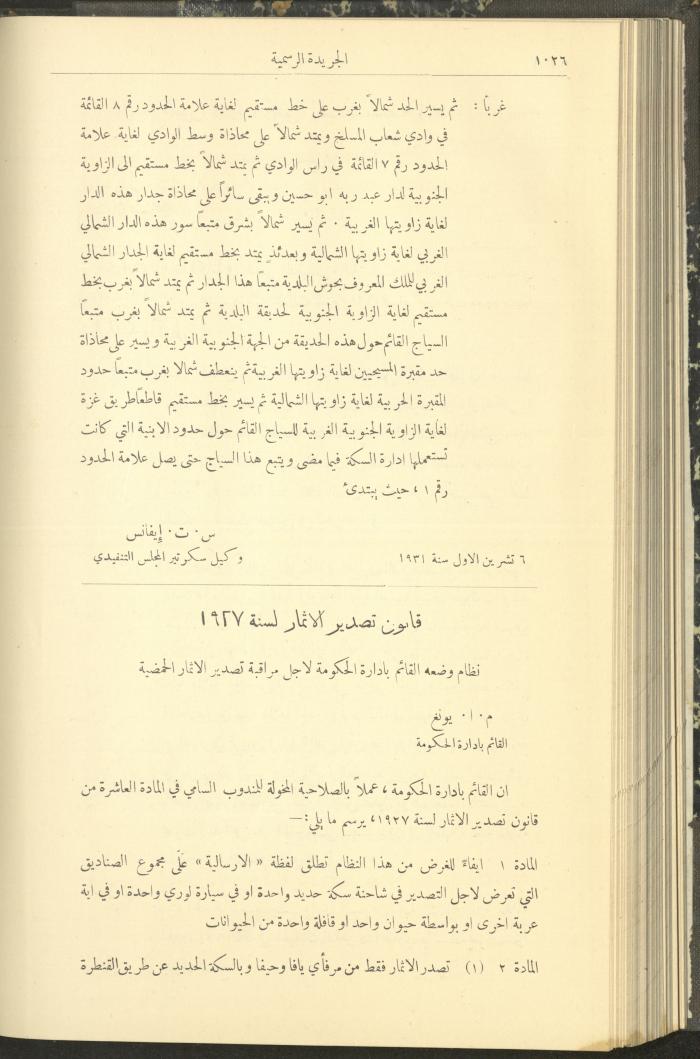 ١٠٢٦
الجريدة الرسمية
غربًا : ثم يسير الحد شمالاً بغرب على خط مستقيم لغاية علامة الحدود رقم ٨ القائمة
في وادي شعاب المسلخ ويمتد شمالاً على محاذاة وسط الوادي لغاية علامة
الحدود رقم ٧ القائمة في راس الوادي ثم يمتد شمالاً بخط مستقيم الى الزاوية
الجنوبية لدار عبد ربه ابو حسين ويبقى سائراً على محاذاة جدار هذه الدار
لغاية زاويتها الغربية . ثم يسير شمالاً بشرق متبعًا سور هذه الدار الشمالي
الغربي لغاية زاويتها الشمالية وبعدئذٍ يمتد بخط مستقيم لغاية الجدار الشمالي
الغربي للملك المعروف بحوش البلدية متبعًا هذا الجدار ثم يمتد شمالاً بغرب بخط
مستقيم لغاية الزاوية الجنوبية لحديقة البلدية ثم يمتد شمالاً بغرب متبعًا
السياج القائم حول هذه الحديقة من الجهة الجنوبية الغربية ويسير على محاذاة
حد مقبرة المسيحيين لغاية زاويتها الغربية ثم ينعطف شمالا بغرب متبعًا حدود
المقبرة الحربية لغاية زاويتها الشمالية ثم يسير بخط مستقيم قاطعًا طريق غزة
لغاية الزاوية الجنوبية الغربية للسياج القائم حول حدود الابنية التي كانت
تستعملها ادارة السكة فيما مضى ويتبع هذا السياج حتى يصل علامة الحدود
رقم ١ ، حيث يبتدئ
س . ت . إيفانس
٦ تشرين الاول سنة ١٩٣١ وكيل سكرتير المجلس التنفيدي
قانون تصدير الاثمار لسنة ١٩٢٧
نظام وضعه القائم بادارة الحكومة لاجل مراقبة تصدير الاثمار الحمضية
م . ا . يونغ
القائم بادارة الحكومة
ان القائم بادارة الحكومة ، عملاً بالصلاحية المخولة للمندوب السامي في المادة العاشرة من
قانون تصدير الاثمار لسنة ١٩٢٧، يرسم ما يلي :—
المادة ١ ايفاءً للغرض من هذا النظام تطلق لفظة « الارسالية » على مجموع الصناديق
التي تعرض لاجل التصدير في شاحنة سكة حديد واحدة او في سيارة لوري واحدة او في اية
عربة اخرى او بواسطة حيوان واحد او قافلة واحدة من الحيوانات
المادة ٢ (١) تصدر الاثمار فقط من مرفأي يافا وحيفا وبالسكة الحديد عن طريق القنطرة